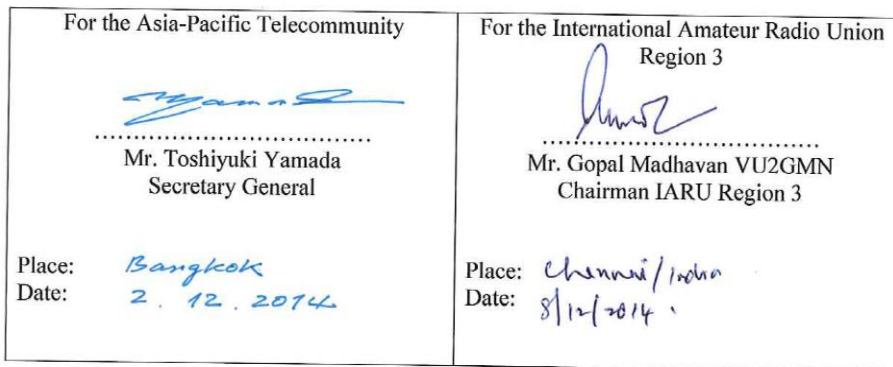 For the Asia-Pacific Telecommunity
Yamada
........................................
Mr. Toshiyuki Yamada
Secretary General
Place: Bangkok
Date: 2. 12. 2014
For the International Amateur Radio Union
Region 3
........................................
Mr. Gopal Madhavan VU2GMN
Chairman IARU Region 3
Place: Chennai/India
Date: 8/12/2014.